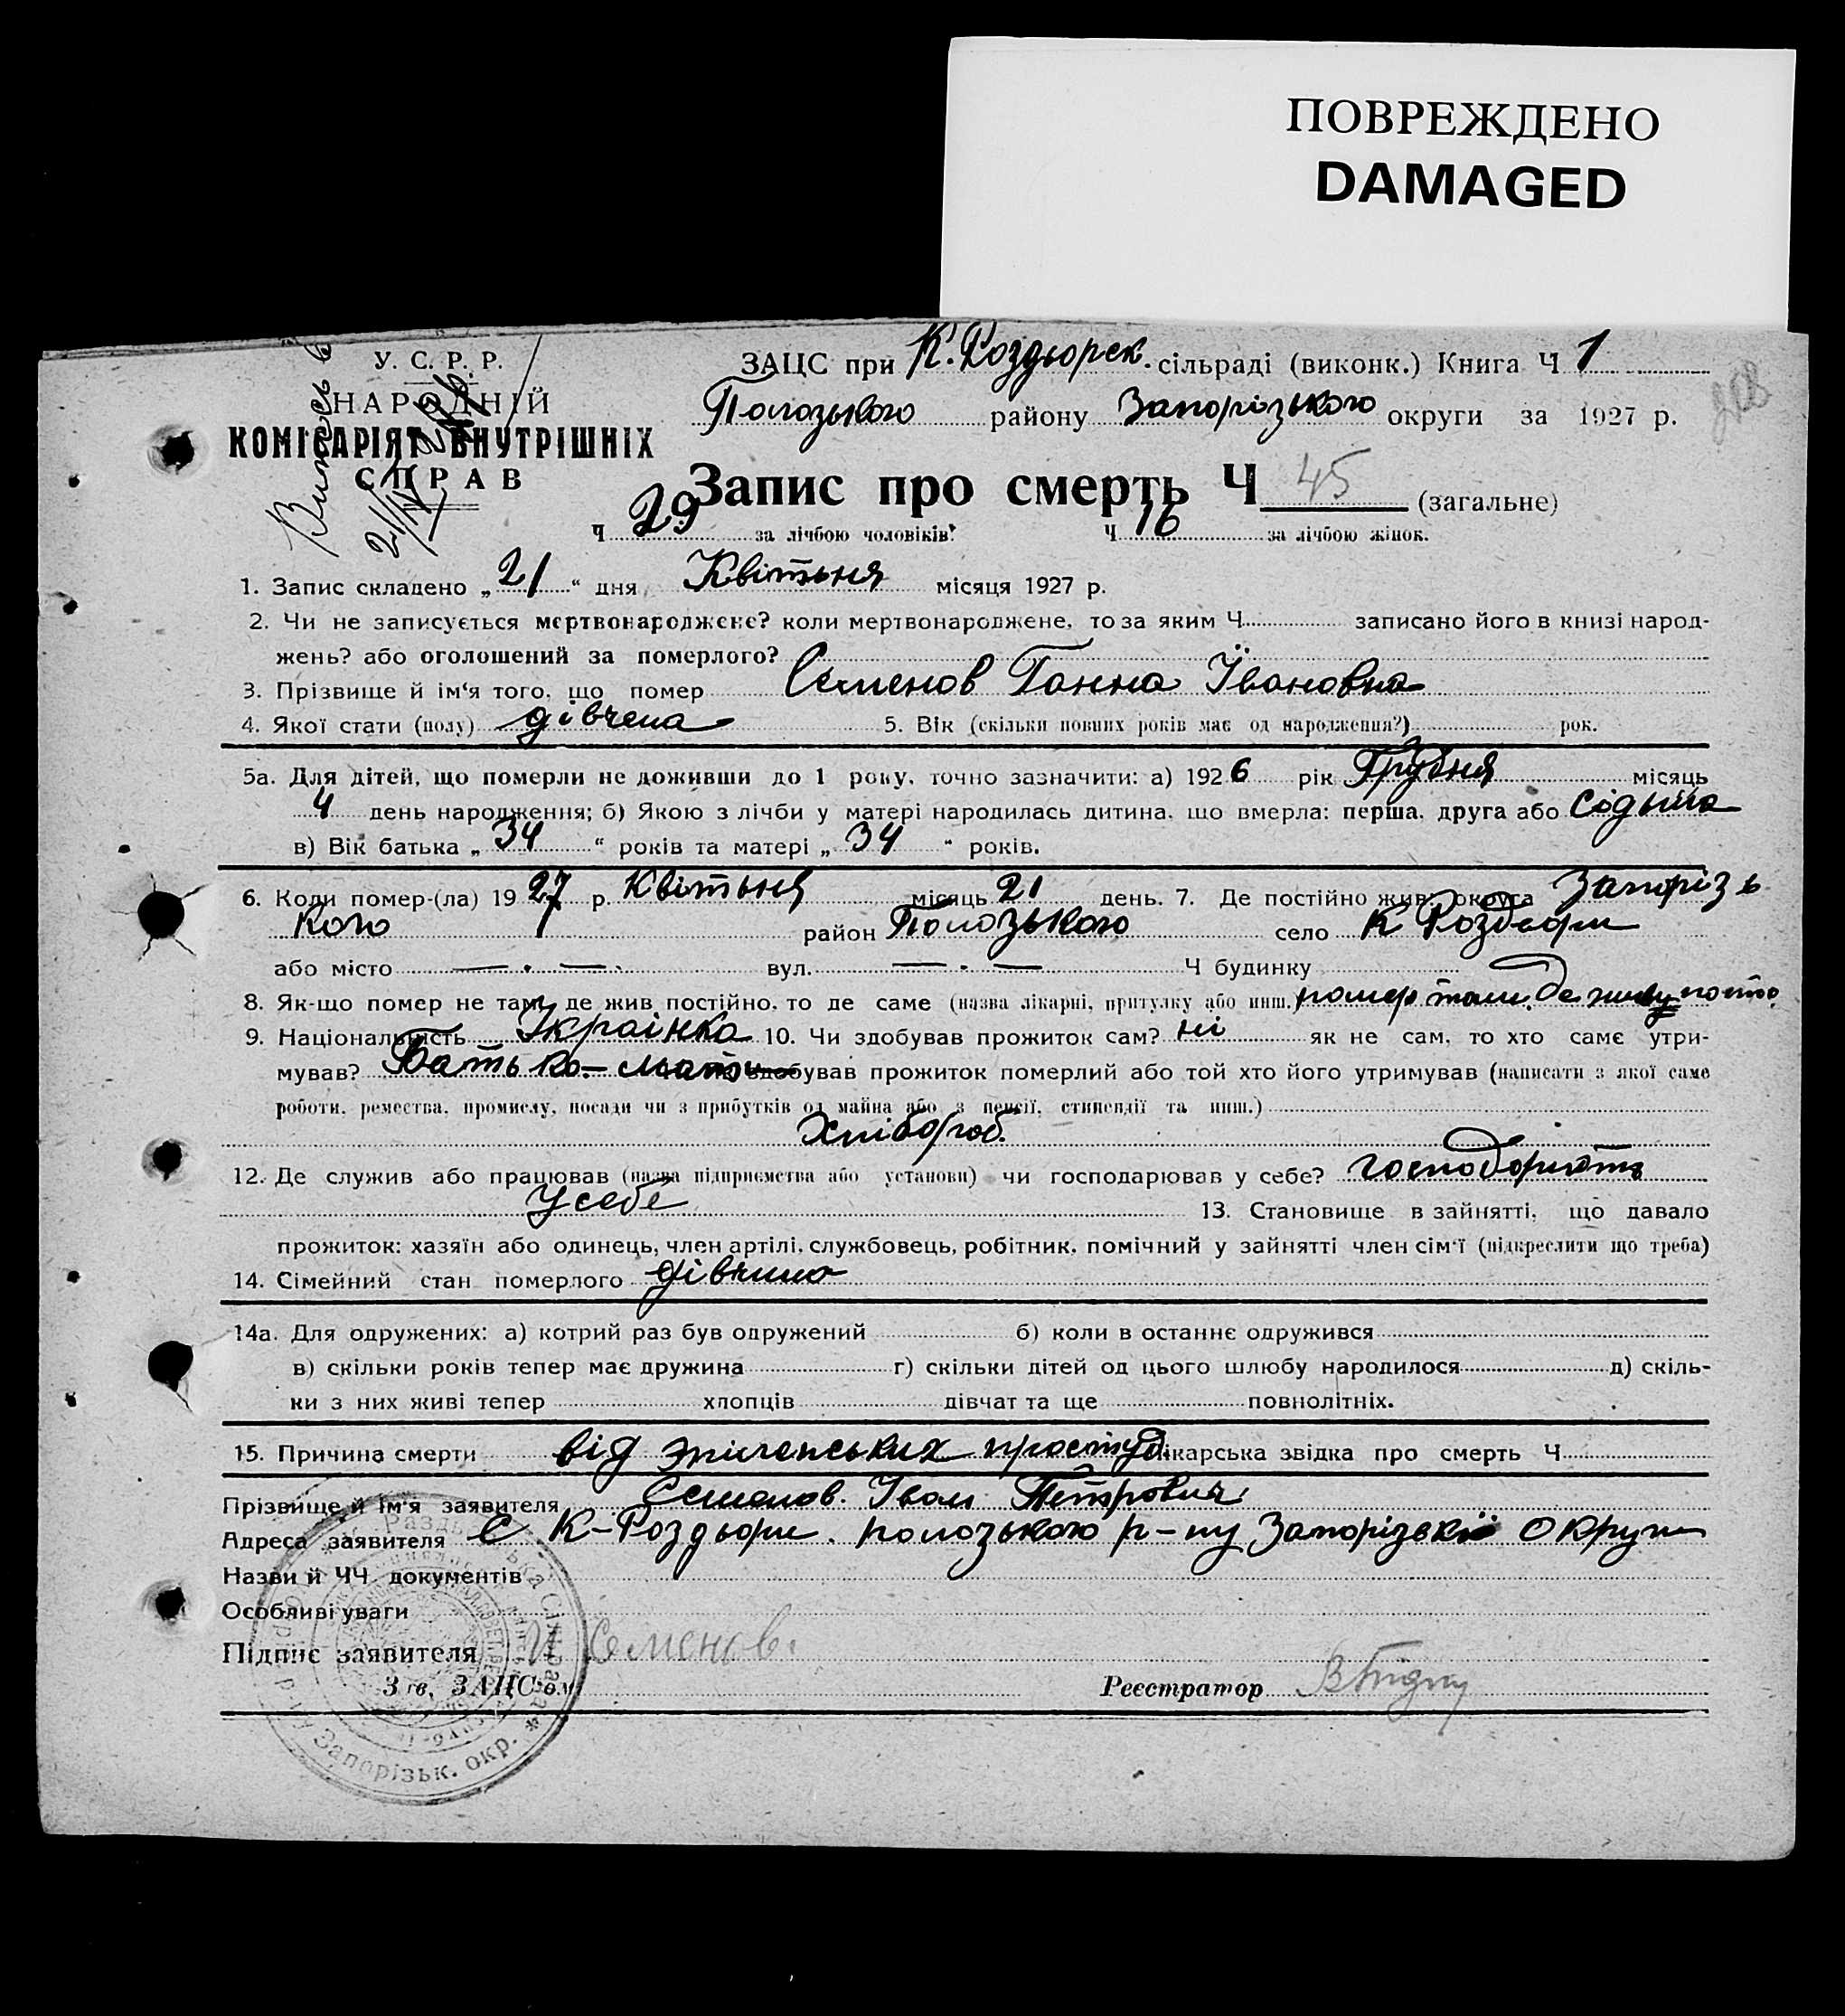 ПОВРЕЖДЕНО
DAMAGED
У. С. Р. Р.
НАРОДНІЙ
КОМІСАРІЯТ ВНУТРІШНІХ
СПРАВ
ЗАЦС при К. Роздьорск. сільраді (виконк.) Книга Ч 1
Пологзького району Запорізького округи за 1927 р.
Запис про смерть Ч 45 (загальне)
Ч 29 за лічбою чоловіків? Ч 16 за лічбою жінок.
1. Запис складено „ 21 “ дня Квітьня місяця 1927 р.
2. Чи не записується мертвонароджене? коли мертвонароджене, то за яким Ч записано його в книзі народ-
жень? або оголошений за померлого?
3. Прізвище й ім'я того, що помер Семенов Ганна Івановна
4. Якої стати (полу) дівчена 5. Вік (скільки повних років має од народження?) рок.
5а. Для дітей, що померли не доживши до 1 року, точно зазначити: а) 1926 рік Грудня місяць
4 день народження; б) Якою з лічби у матері народилась дитина, що вмерла: перша, друга або сідьма
в) Вік батька „ 34 “ років та матері „ 34 “ років.
6. Коли помер-(ла) 1927 р. Квітьня місяць 21 день. 7. Де постійно жив: округа Запорізь
кого район Полозького село К Роздори
або місто — . — . вул. — . — Ч будинку
8. Як-що помер не там, де жив постійно, то де саме (назва лікарні, притулку або инш.) помер там де
9. Національність Украінка 10. Чи здобував прожиток сам? ні як не сам, то хто саме утри-
мував? Батько - мати здобував прожиток померлий або той хто його утримував (написати з якої саме
роботи, ремества, промислу, посади чи з прибутків од майна або з пенсії, стипендії та инш.)
Хлібороб.
12. Де служив або працював (назва підприємства або установи) чи господарював у себе? господорюють
У себе 13. Становище в зайнятті, що давало
прожиток: хазяїн або одинець, член артілі, службовець, робітник, помічний у зайнятті член сім'ї (підкреслити що треба)
14. Сімейний стан померлого дівчина
14а. Для одружених: а) котрий раз був одружений б) коли в останнє одружився
в) скільки років тепер має дружина г) скільки дітей од цього шлюбу народилося д) скіль-
ки з них живі тепер хлопців дівчат та ще повнолітніх.
15. Причина смерти від простуд. Лікарська звідка про смерть Ч
Прізвище й ім'я заявителя Семенов Іван Петрович
Адреса заявителя с К-Роздьори. полозького р-ну Запорізької Округи
Назви й ЧЧ документів
Особливі уваги
Підпис заявителя И Семенов
Зав. ЗАЦС'ом Реєстратор
Запорізьк. окр.